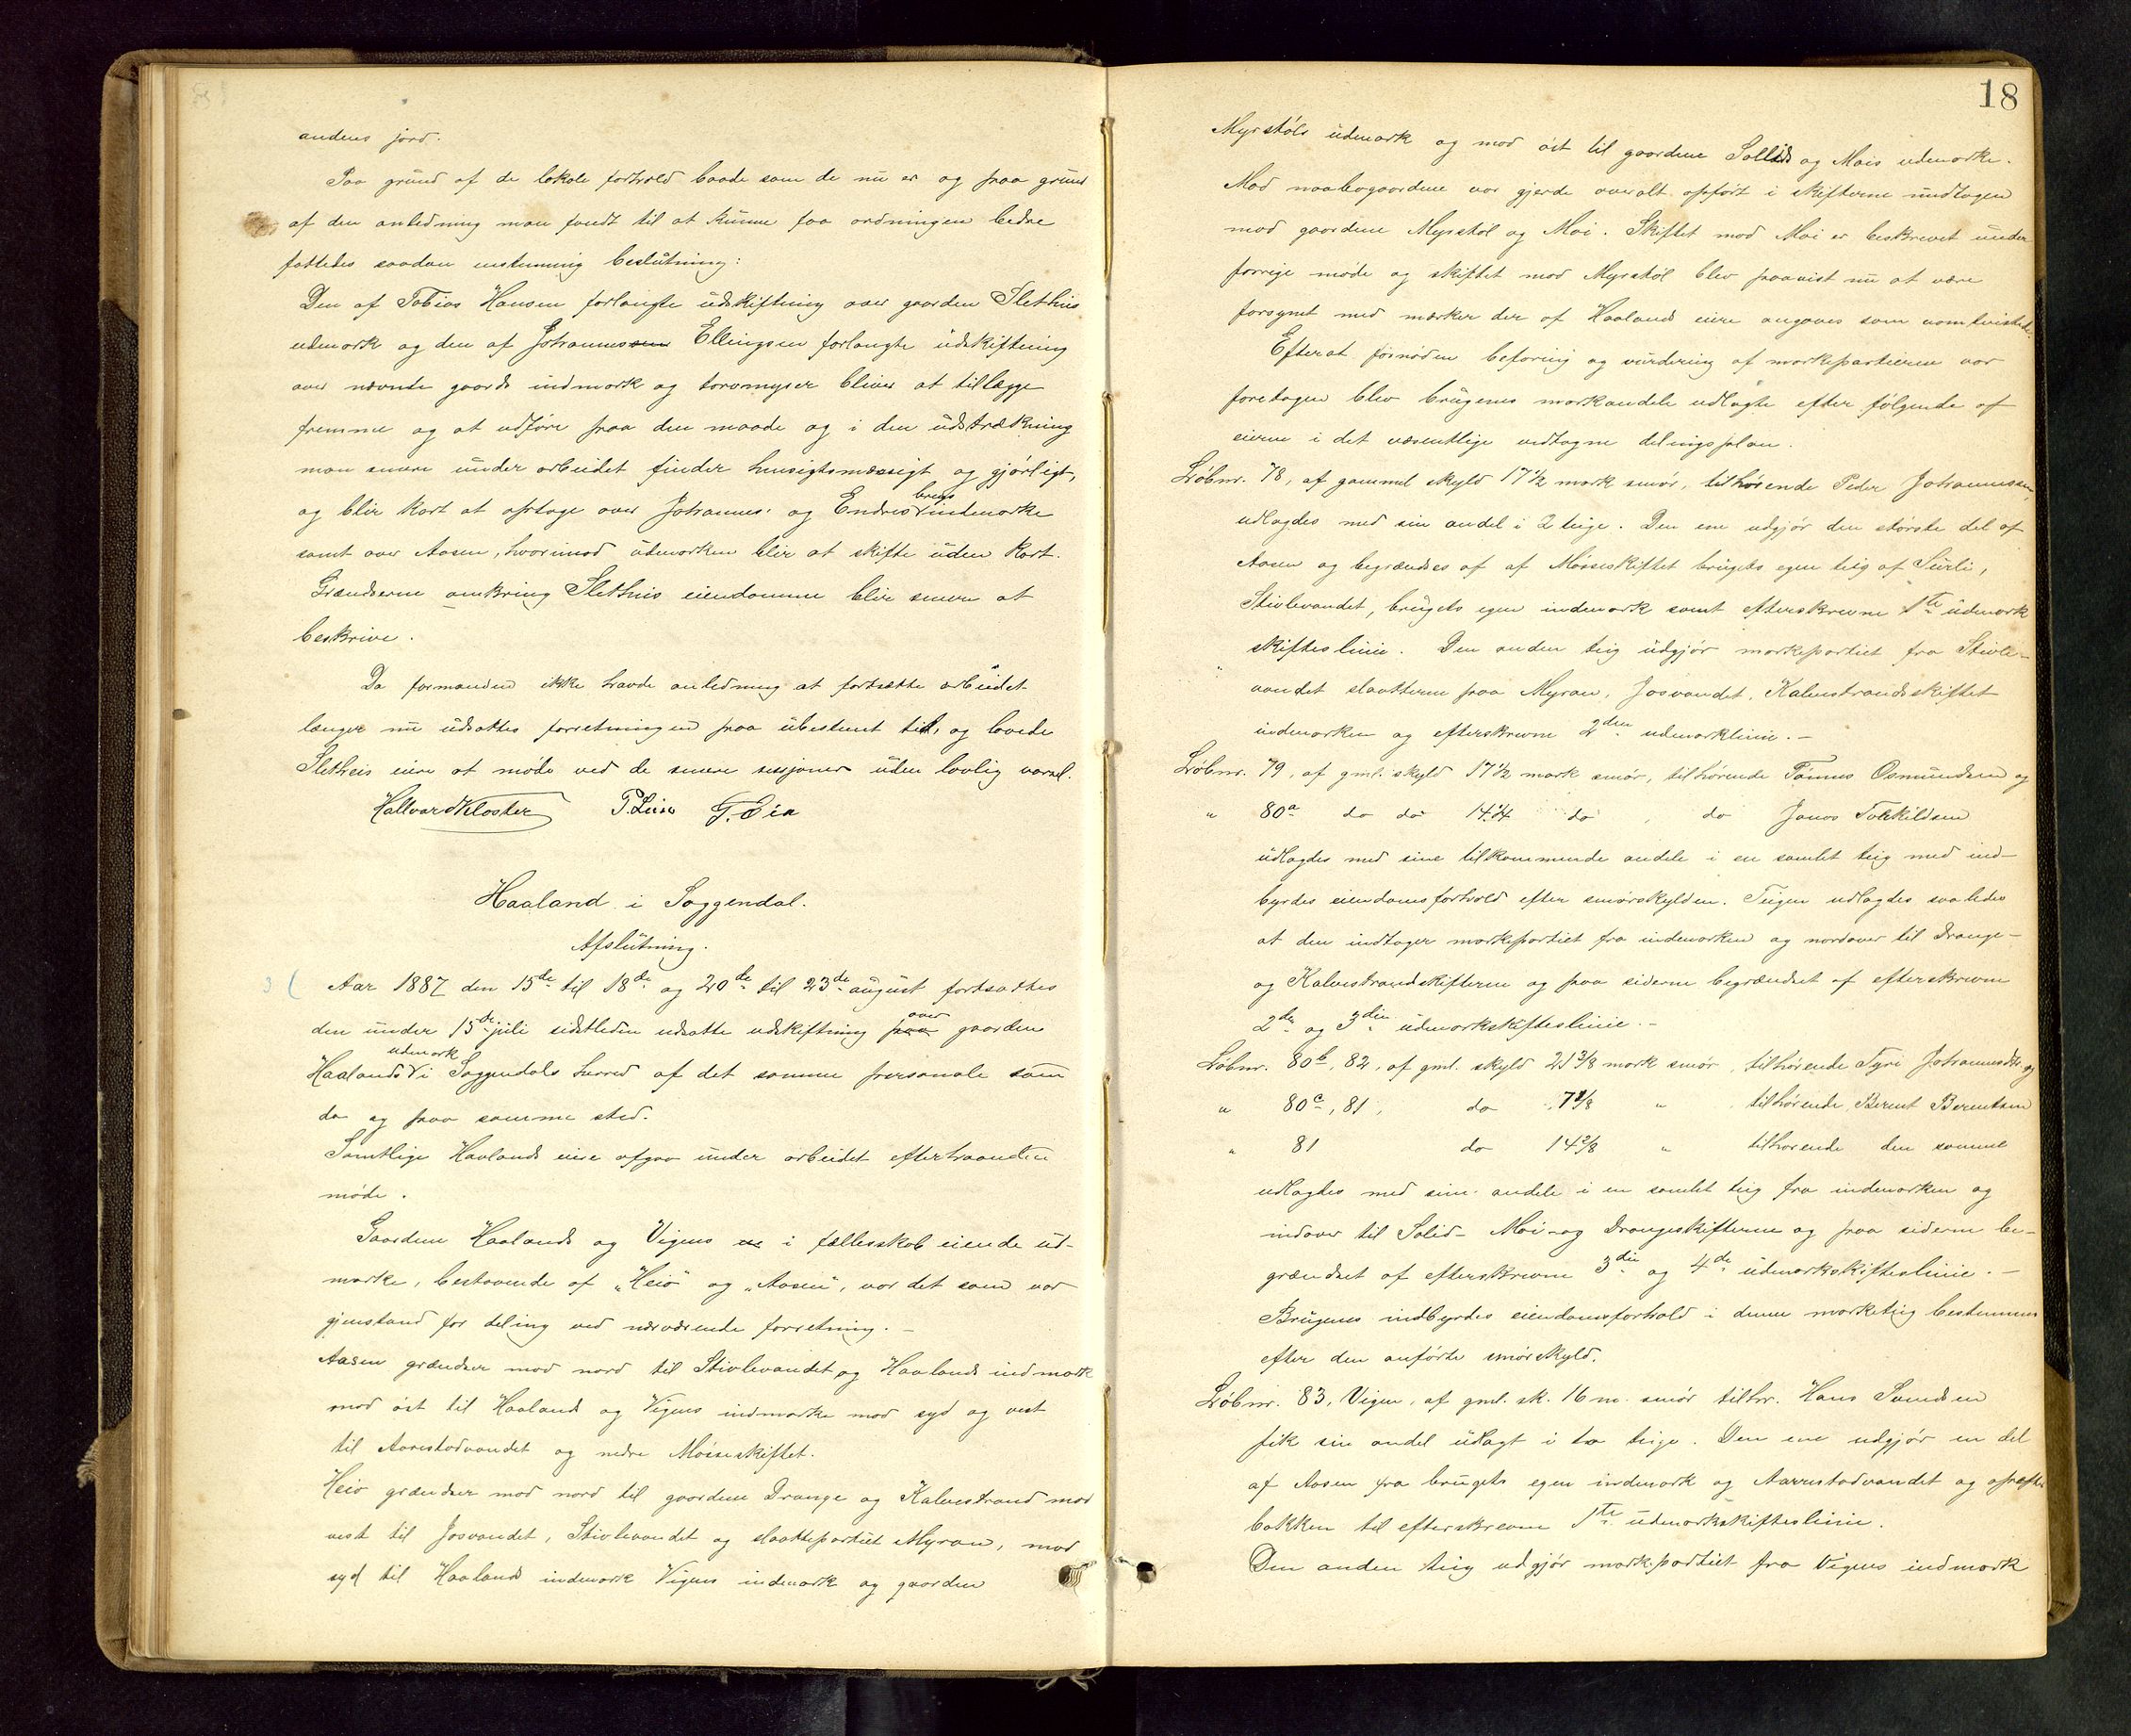 andens jord.
Paa grund af de lokale forhold baade som de nu er og paa grund
af den anledning man fandt til at kunne faa ordningen bedre
fattedes saadan enstemmig beslutning:
Den af Tobias Hansen forlangte udskiftning over gaarden Slethus
udmark og den af Johannes Ellingsen forlangte udskiftning
over nævnte gaards indmark og torvmyrer bliver at tillægge
fremme og at udføre paa den maade og i den udstrækning
man senere under arbeidet finder hensigtsmæssigt og gjørligt,
og blir kart at optage over Johannes' og Endres brugs indmarke
samt over Aasen, hvorimod udmarken blir at skifte uden kart.
Grændserne omkring Slethus eiendomme blir senere at
beskrive.
Da formanden ikke havde anledning at fortsætte arbeidet
længer nu udsattes forretningen paa ubestemt tid, og lovede
Sletheis eiere at møde ved de senere sessjoner uden lovlig varsel.
Hallvard Kloster P. Lura T. Eia
Haaland i Soggendal.
Afslutning.
3 ( Aar 1887 den 15de til 18de og 20de til 23de august fortsattes
den under 15de juli sidstleden udsatte udskiftning paa over gaarden
Haalands udmark i Soggendals herred af det samme personale som
da og paa samme sted.
Samtlige Haalands eiere afgav under arbeidet efterhaanden
møde.
Gaardene Haalands og Vigens i fællesskab eiende ud-
marke, bestaaende af "Heio" og "Aasen", var det som var
gjenstand for deling ved nærværende forretning. –
Aasen grændser mod nord til Stivlevandet og Haalands indmark
mod øst til Haaland og Vigens indmarke mod syd og vest
til Aarestadvandet og nedre Mosseskiftet.
Heio grændser mod nord til gaardene Drange og Kalvestrand mod
vest til Josvandet, Stivlevandet og slaattepartiet Myran, mod
syd til Haaland indmark Vigens indmark og gaarden
18
Myrstøls udmark og mod øst til gaardene Sollids og Mois udmarke.
Mod naabogaardene var gjerde overalt opført i skifterne undtagen
mod gaardene Myrstøl og Moi. Skiftet mod Moi er beskrevet under
forrige møde og skiftet mod Myrstøl blev paavist nu at være
forsynet med mærker der af Haalands eiere angaves som uomtvistede.
Efterat fornøden befaring og vurdering af markepartierne var
foretagen blev brugenes markandele udlagte efter følgende af
eierne i det væsentlige vedtagne delingsplan.
Løbnr. 78, af gammel skyld 17½ mark smør, tilhørende Peder Johannessen,
udlagdes med sin andel i 2 teige. Den ene udgjør den største del af
Aasen og begrændses af af Mosseskiftet brugets egen teig af Surli,
Stivlevandet, brugets egen indmark samt efterskrevne 1te udmark
skifteslinie. Den anden teig udgjør markepartiet fra Stivle-
vandet slaatterne paa Myran, Josvandet, Kalvestrandsskiftet
indmarken og efterskrevne 2den udmarklinie. –
Løbnr. 79, af gml. skyld 17½ mark smør, tilhørende Tønnes Osmundsen og
" 80a do do 14¼ do, do Jonas Torkildsen
udlagdes med sine tilkommende andele i en samlet teig med ind-
byrdes eiendomsforhold efter smørskylden. Teigen udlagdes saaledes
at den indtager markepartiet fra indmarken og nordover til Drange-
og Kalvestrandskifterne og paa siderne begrændset af efterskrevne
2den og 3die udmarkskifteslinie. –
Løbnr. 80b, 82, af gml. skyld 21 3/8 mark smør, tilhørende Tyri Johannesdtr. og
" 80c, 81, do 7 1/8 " tilhørende Bernt Berentsen
" 81 do 14 2/8 " tilhørende den samme
udlagdes med sine andele i en samlet teig fra indmarken og
indover til Solid- Moi- og Drangeskifterne og paa siderne be-
grændset af efterskrevne 3die og 4de udmarkskifteslinie. –
Brugenes indbyrdes eiendomsforhold i denne marketeig bestemmes
efter den anførte smørskyld.
Løbnr. 83, Vigen, af gml. sk. 16 m. smør tilhør. Hans Samdsen
fik sin andel udlagt i to teige. Den ene udgjør en del
af Aasen fra brugets egen indmark og Aarrestadvandet og opefter
bakken til efterskrevne 1te udmarkskifteslinie.
Den anden teig udgjør markpartiet fra Vigens indmark